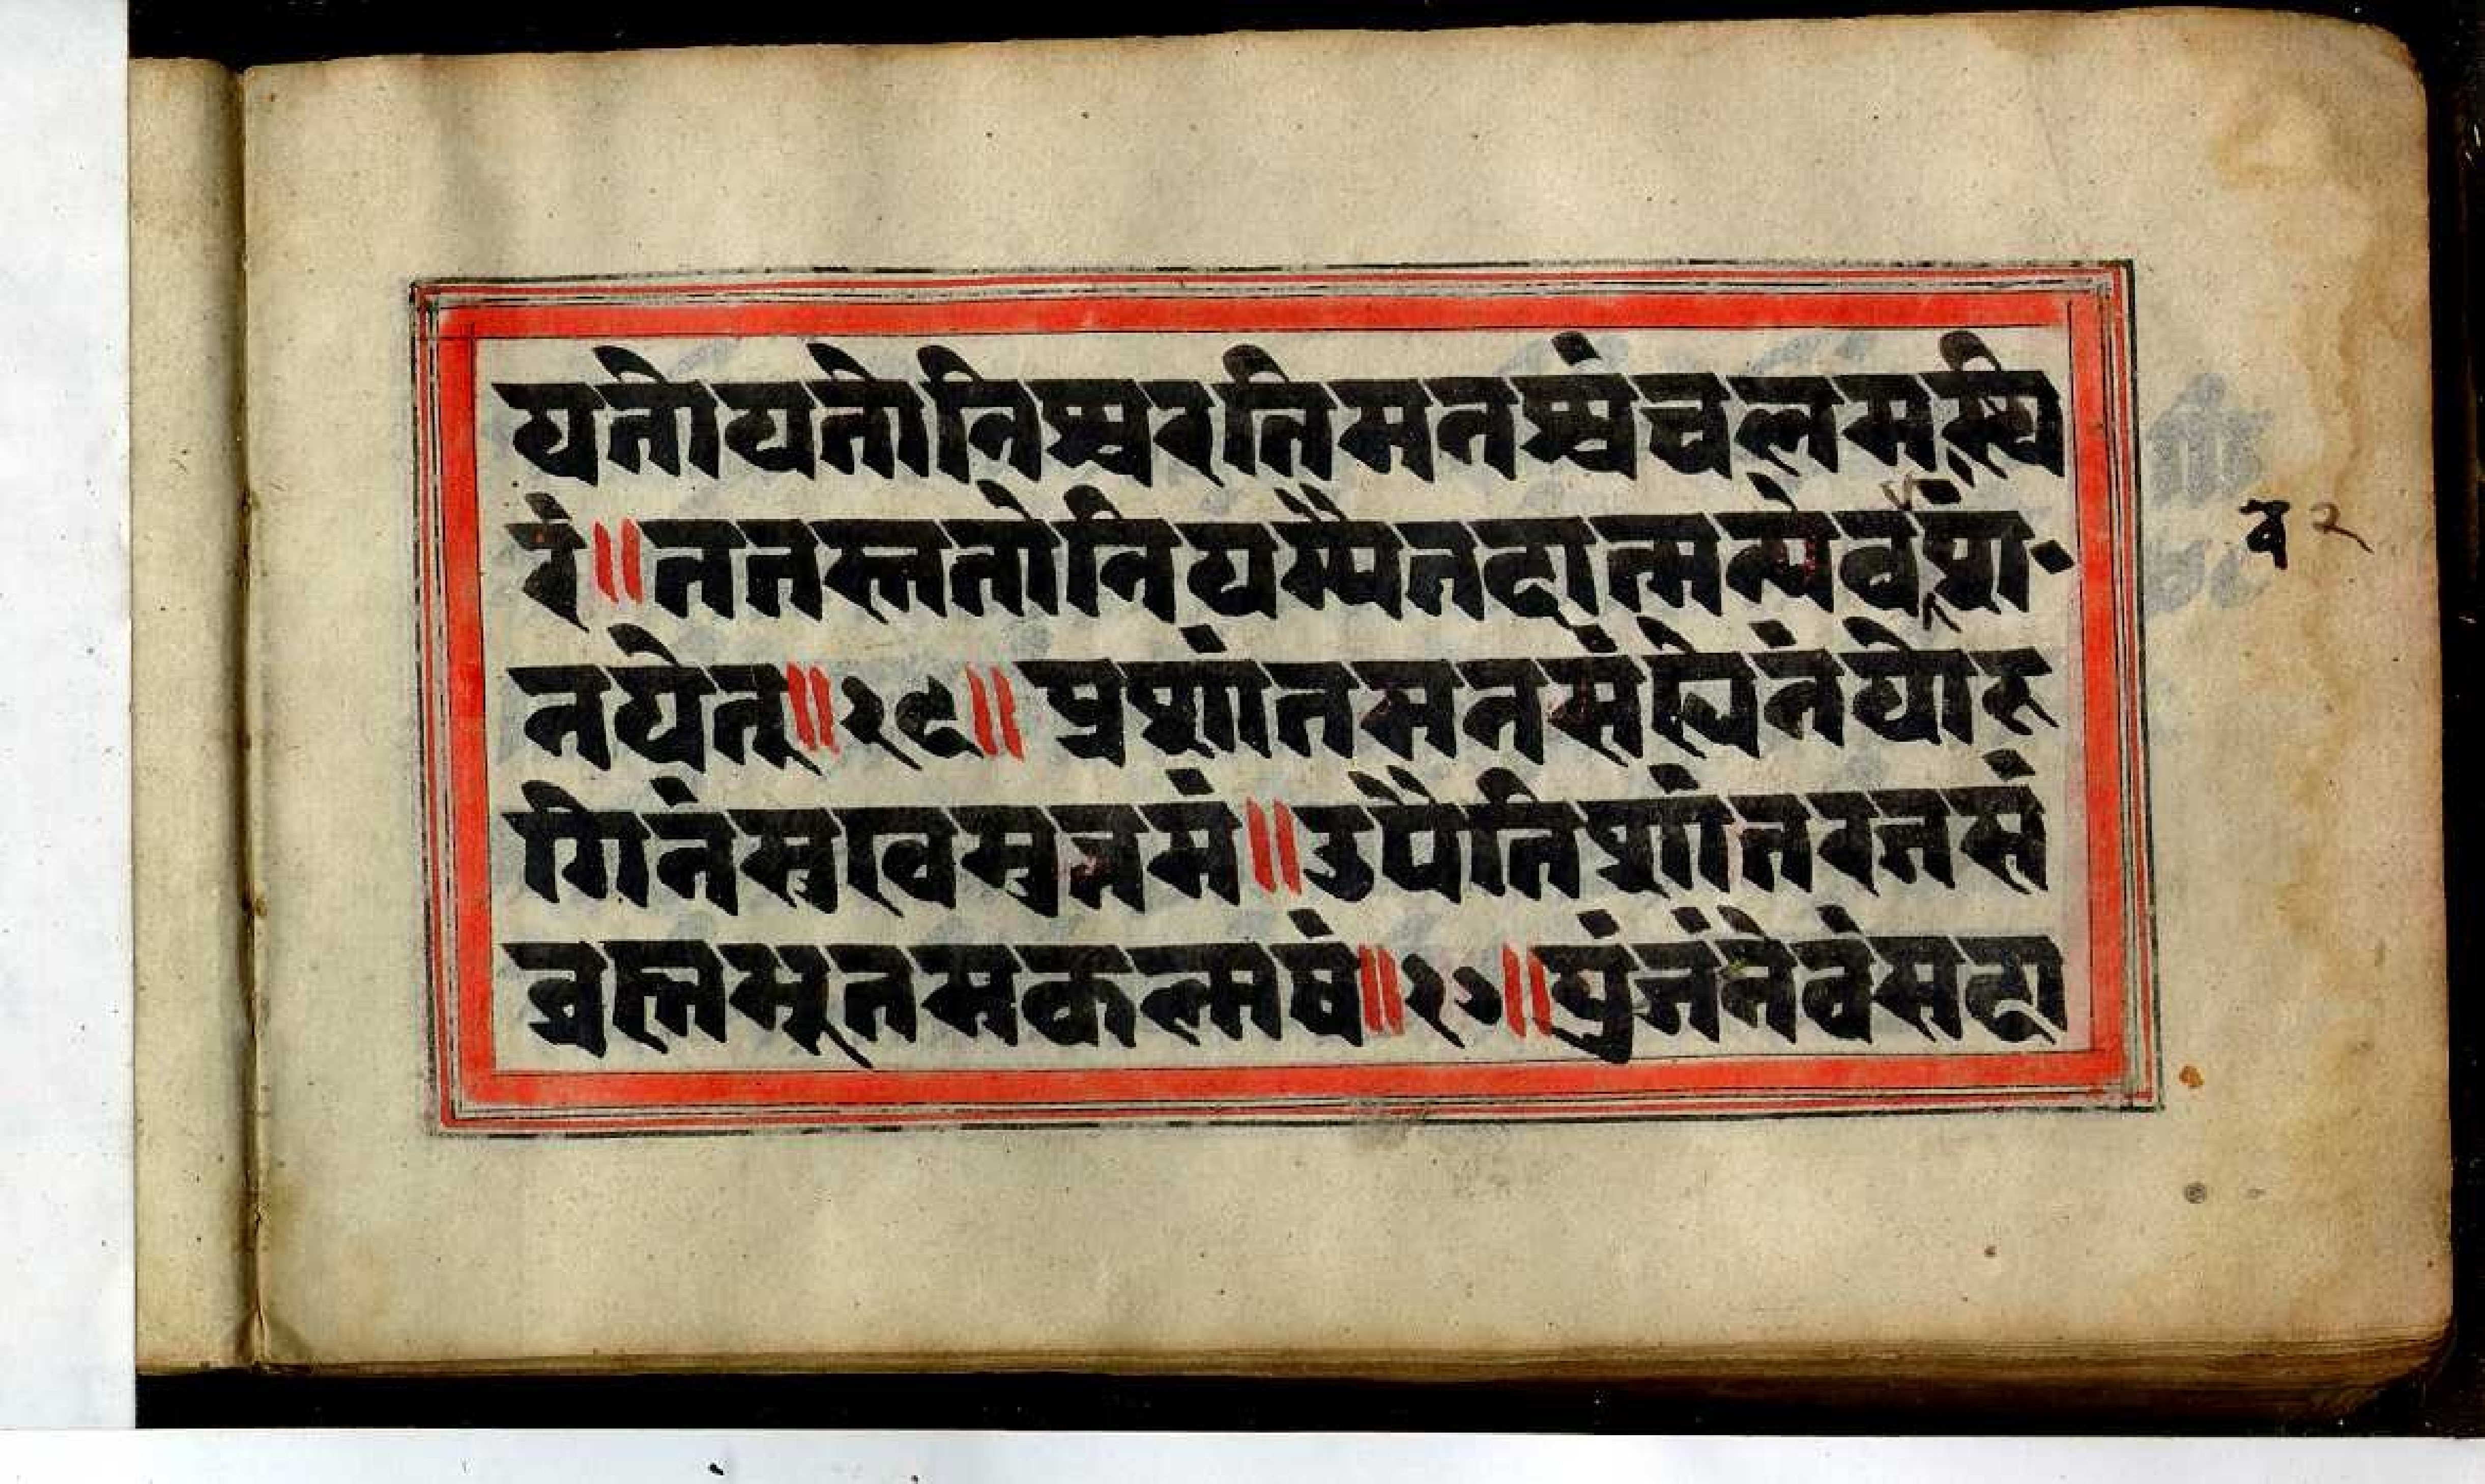 यतोयतोनिश्चरतिमनश्चंचलमस्थि
रं॥ततस्ततोनियम्यैतदात्मन्येवंशं
नयेत्॥२९॥प्रशांतमनसंह्येनंयो
गिनंसुखमुत्तमं॥उपैतिशांतरजसं
ब्रह्मभूतमकल्मषं॥२०॥युंजंनेवंसदा
व २